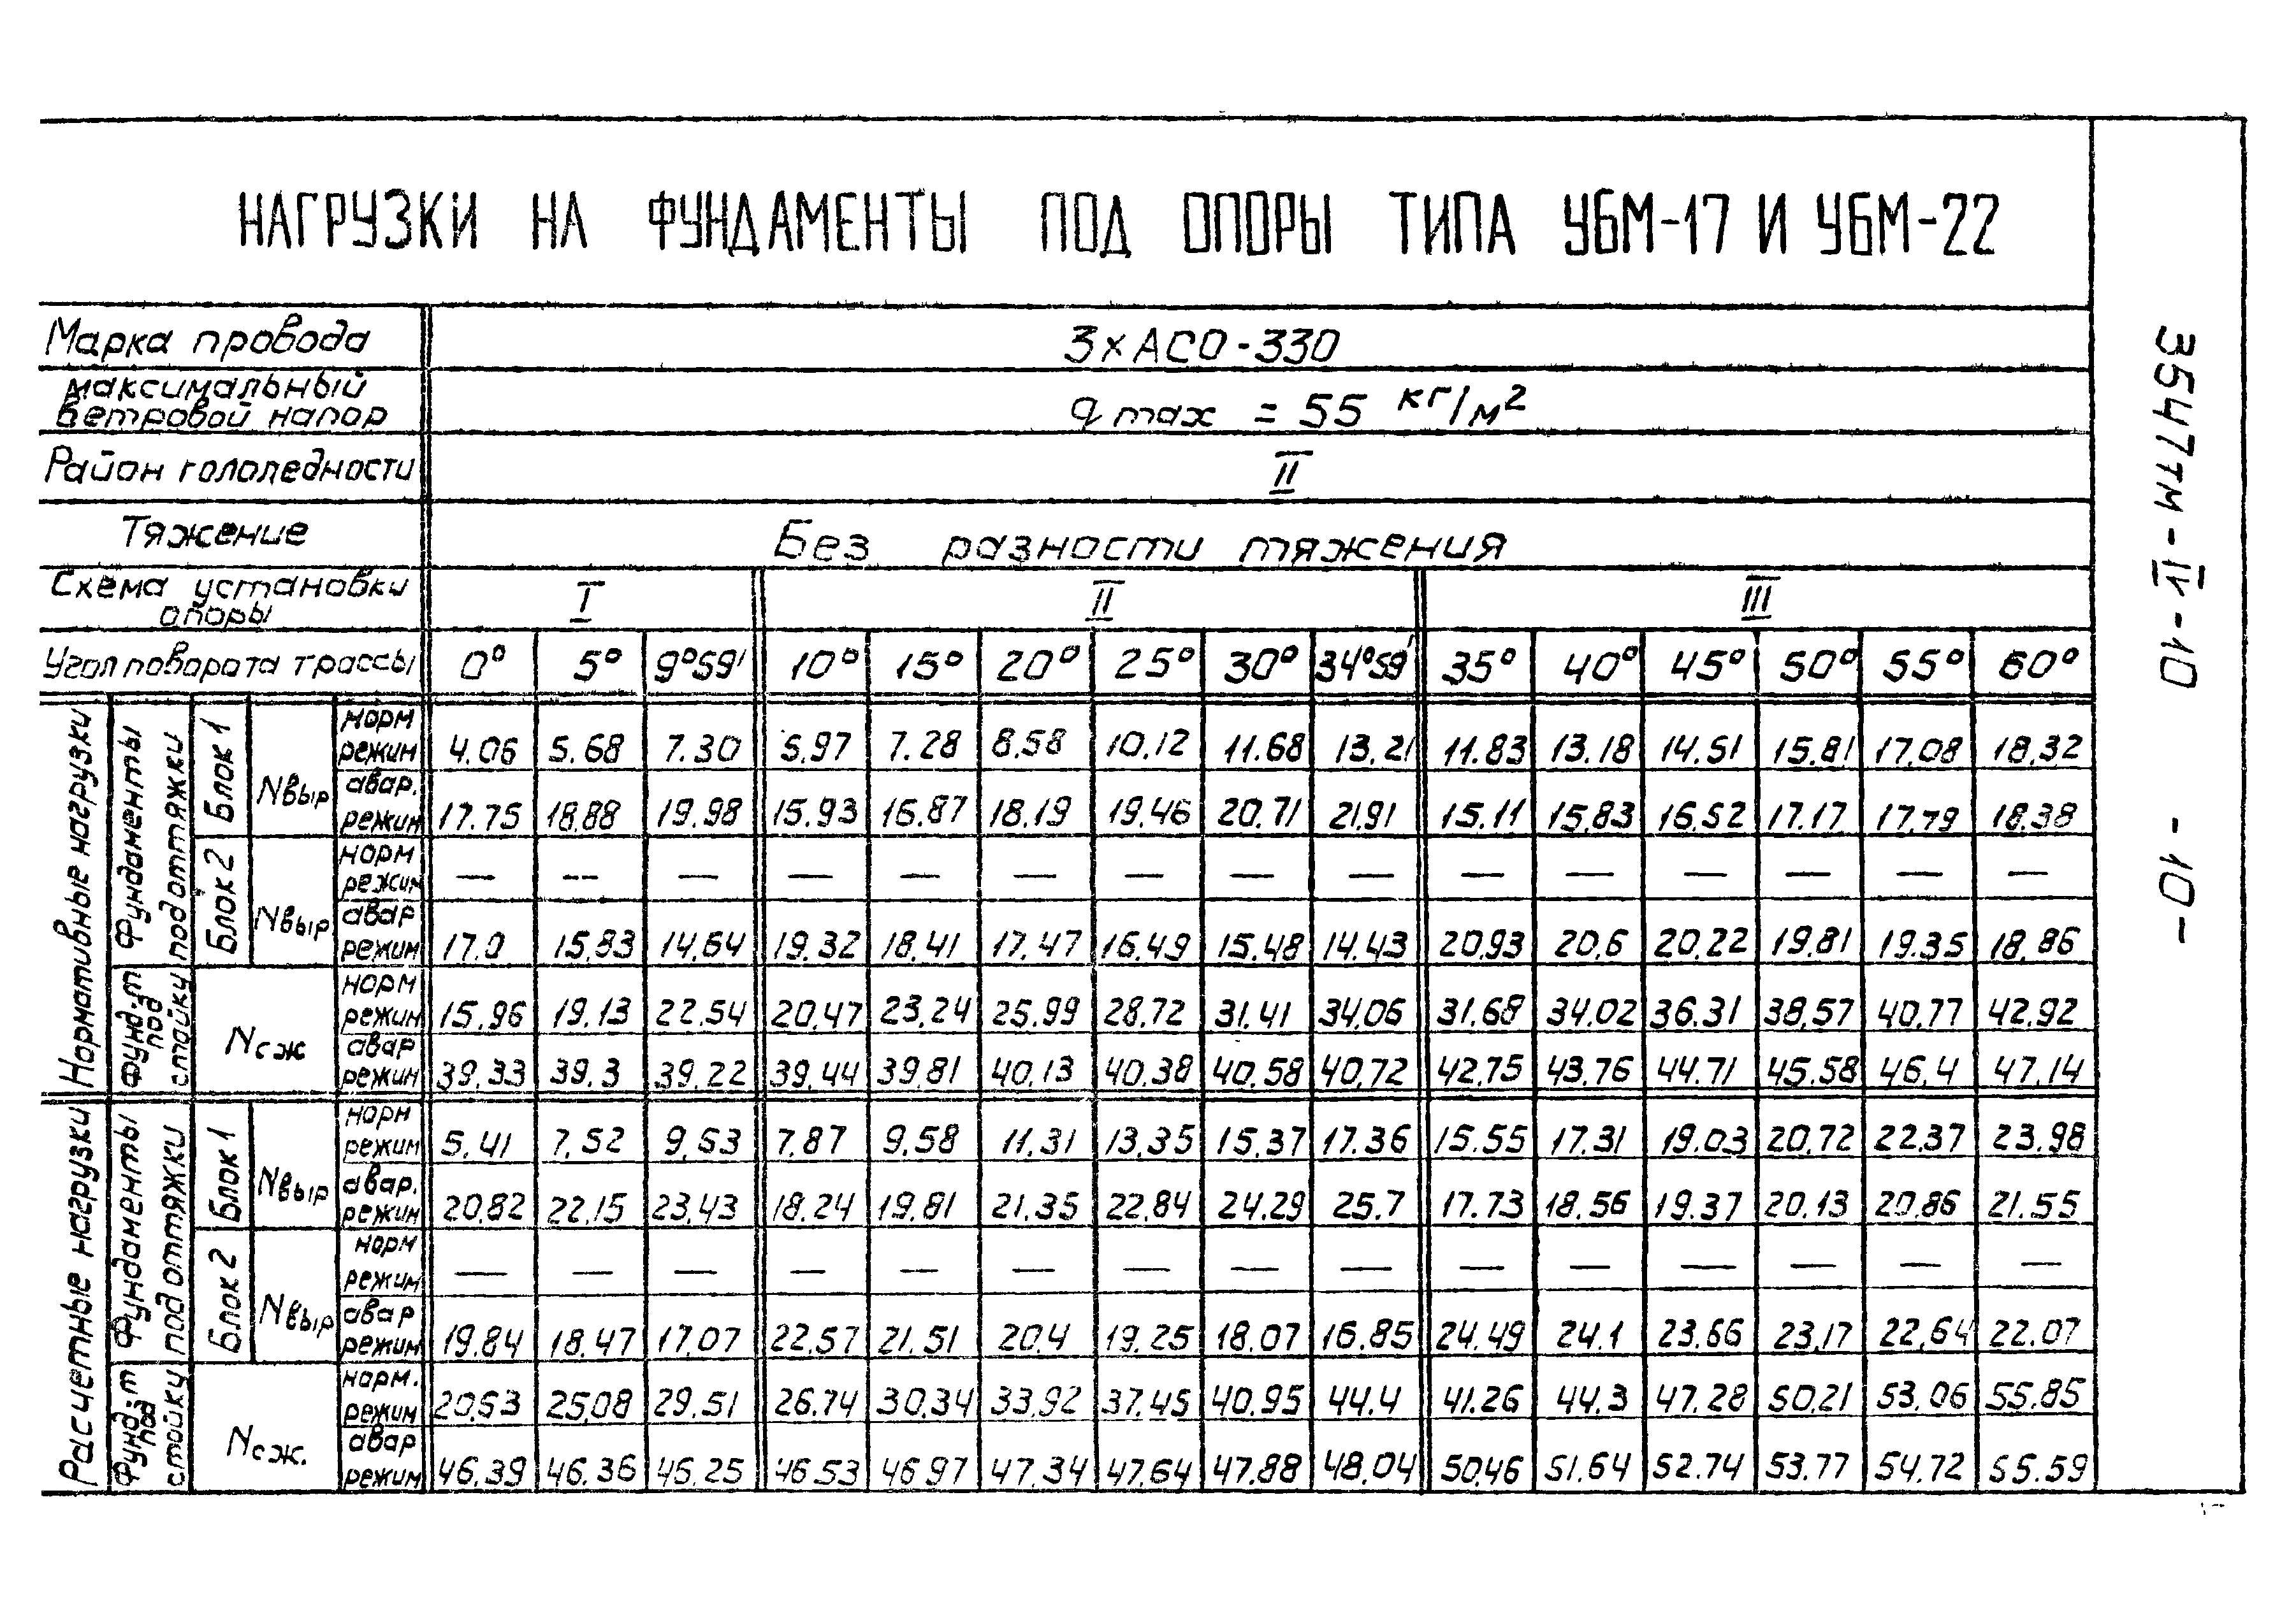 НАГРУЗКИ НА ФУНДАМЕНТЫ ПОД ОПОРЫ ТИПА УБМ-17 И УБМ-22
Марка провода 3×АСО-330
максимальный ветровой напор q max = 55 кг/м²
Район гололедности II
Тяжение Без разности тяжения
Схема установки опоры I II III
Угол поворота трассы 0° 5° 9°59' 10° 15° 20° 25° 30° 34°59' 35° 40° 45° 50° 55° 60°
Нормативные нагрузки
Фундаменты под оттяжки
Блок 1 Nвыр
норм режим 4.06 5.68 7.30 5.97 7.28 8.58 10.12 11.68 13.21 11.83 13.18 14.51 15.81 17.08 18.32
авар. режим 17.75 18.88 19.98 15.93 16.87 18.19 19.46 20.71 21.91 15.11 15.83 16.52 17.17 17.79 18.38
Блок 2 Nвыр
норм режим — — — — — — — — — — — — — — —
авар режим 17.0 15.83 14.64 19.32 18.41 17.47 16.49 15.48 14.43 20.93 20.6 20.22 19.81 19.35 18.86
Фунд-т под стойку
Nсж
норм режим 15.96 19.13 22.54 20.47 23.24 25.99 28.72 31.41 34.06 31.68 34.02 36.31 38.57 40.77 42.92
авар режим 39.33 39.3 39.22 39.44 39.81 40.13 40.38 40.58 40.72 42.75 43.76 44.71 45.58 46.4 47.14
Расчетные нагрузки
Фундаменты под оттяжки
Блок 1 Nвыр
норм режим 5.41 7.52 9.53 7.87 9.58 11.31 13.35 15.37 17.36 15.55 17.31 19.03 20.72 22.37 23.98
авар. режим 20.82 22.15 23.43 18.24 19.81 21.35 22.84 24.29 25.7 17.73 18.56 19.37 20.13 20.86 21.55
Блок 2 Nвыр
норм режим — — — — — — — — — — — — — — —
авар режим 19.84 18.47 17.07 22.57 21.51 20.4 19.25 18.07 16.85 24.49 24.1 23.66 23.17 22.64 22.07
Фунд-т под стойку
Nсж.
норм. режим 20.53 25.08 29.51 26.74 30.34 33.92 37.45 40.95 44.4 41.26 44.3 47.28 50.21 53.06 55.85
авар режим 46.39 46.36 46.25 46.53 46.97 47.34 47.64 47.88 48.04 50.46 51.64 52.74 53.77 54.72 55.59
3547тм-II-10 -10-